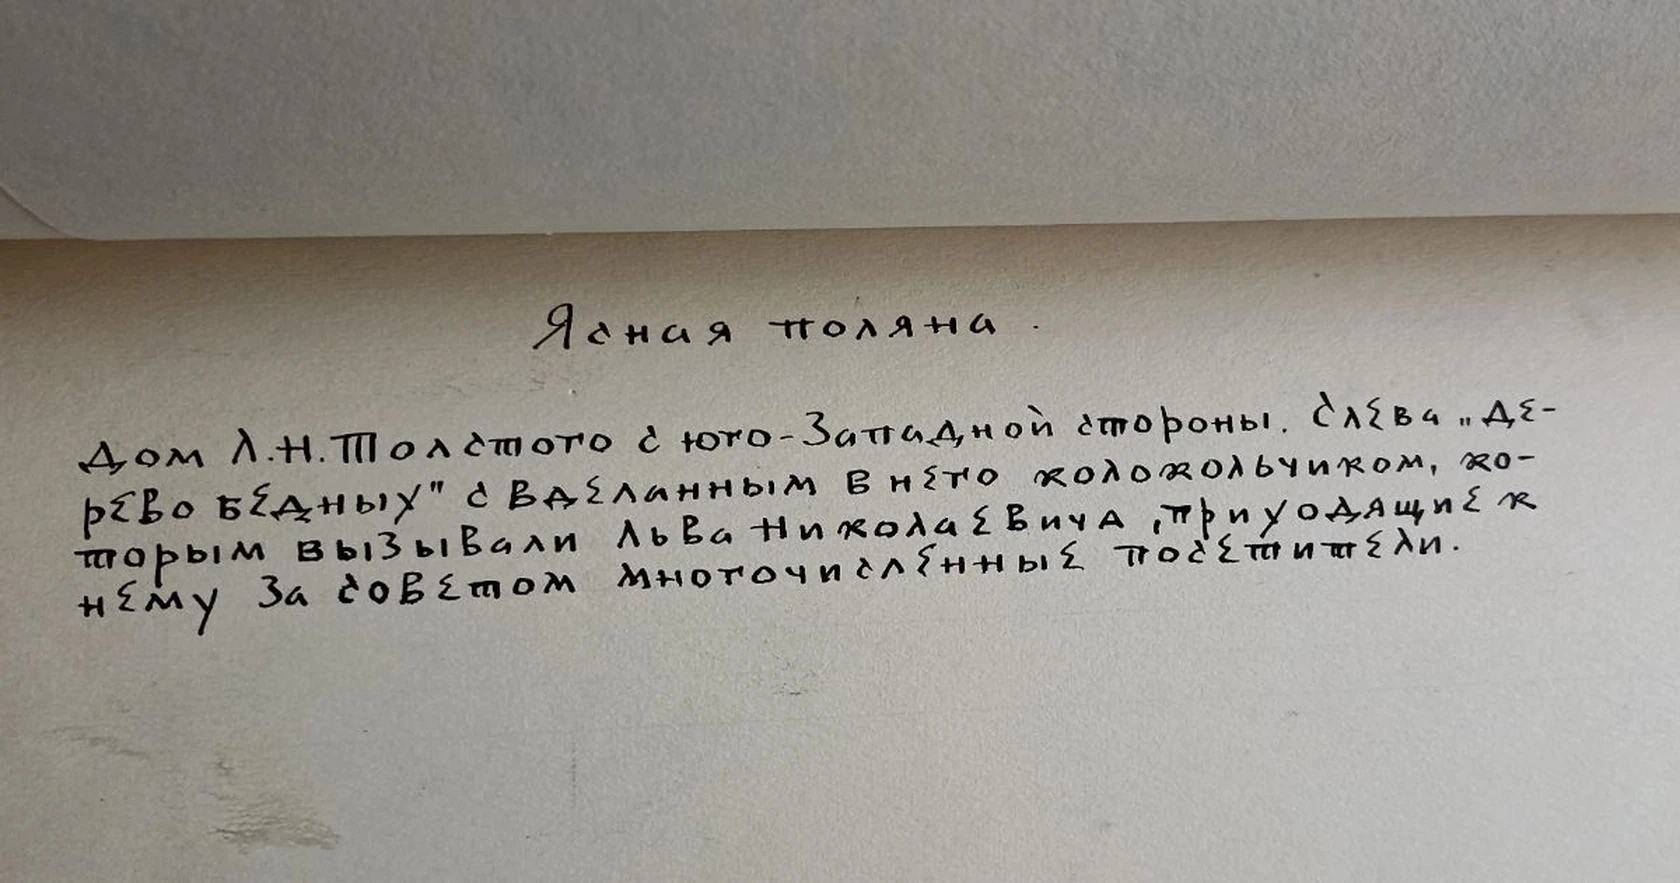 Ясная поляна.
Дом Л.Н.Толстого с юго-Западной стороны. Слева „де-
рево бедных" с вделанным в него колокольчиком, ко-
торым вызывали Льва Николаевича, приходящие к
нему за советом многочисленные посетители.